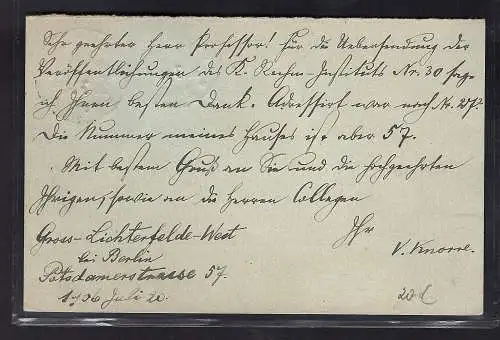 Sehr geehrter Herr Professor! Für die Uebersendung der
Veröffentlichungen des K. Rechen-Instituts Nr. 30 sage
ich Ihnen besten Dank. Adressirt war nach Nr. 27.
Die Nummer meines Hauses ist aber 57.
Mit bestem Gruß an Sie und die hochgeehrten
Ihrigen, sowie an die Herren Collegen
Ihr
V. Knorre.
Gross-Lichterfelde-West
bei Berlin
Potsdamerstrasse 57.
1906 Juli 20.